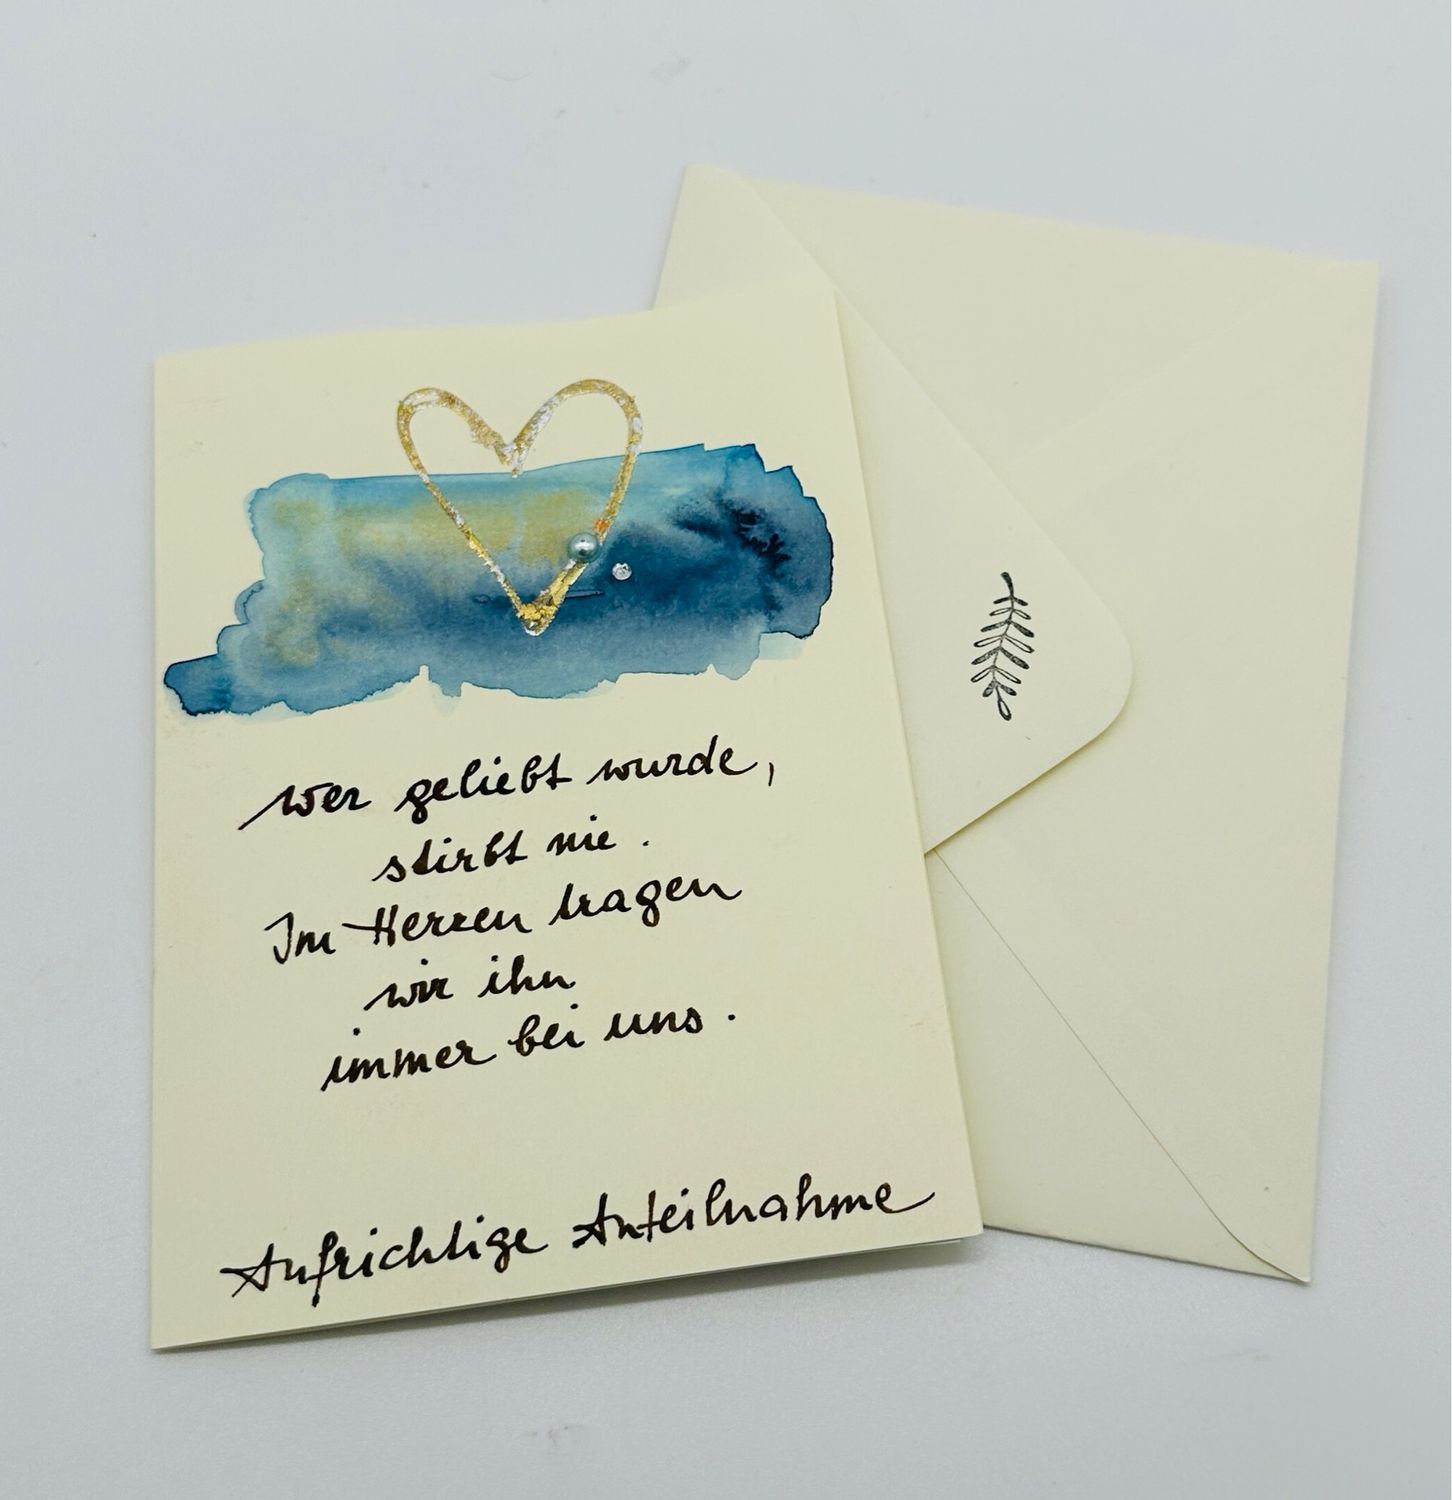 Wer geliebt wurde,
stirbt nie.
Im Herzen tragen
wir ihn
immer bei uns.
Aufrichtige Anteilnahme